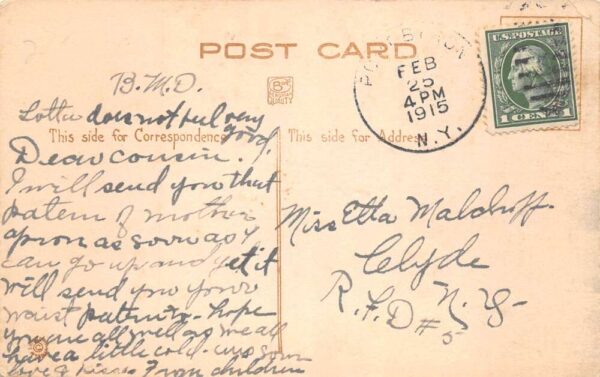 POST CARD
U.S. POSTAGE
1 CENT 1
PORT BYRON
FEB
25
4 PM
1915
N.Y.
QUALITY
B.M.D.
Lotta does not feel very
good
This side for Correspondence
Dear cousin.
I will send you that
patern of mother
apron as soon as I
can go up and get it
will send you your
waist patern - hope
you are all well as we all
have a little cold.
love & kisses From children
This side for Address
Miss Etta
Clyde
N.Y.
R.F.D #5